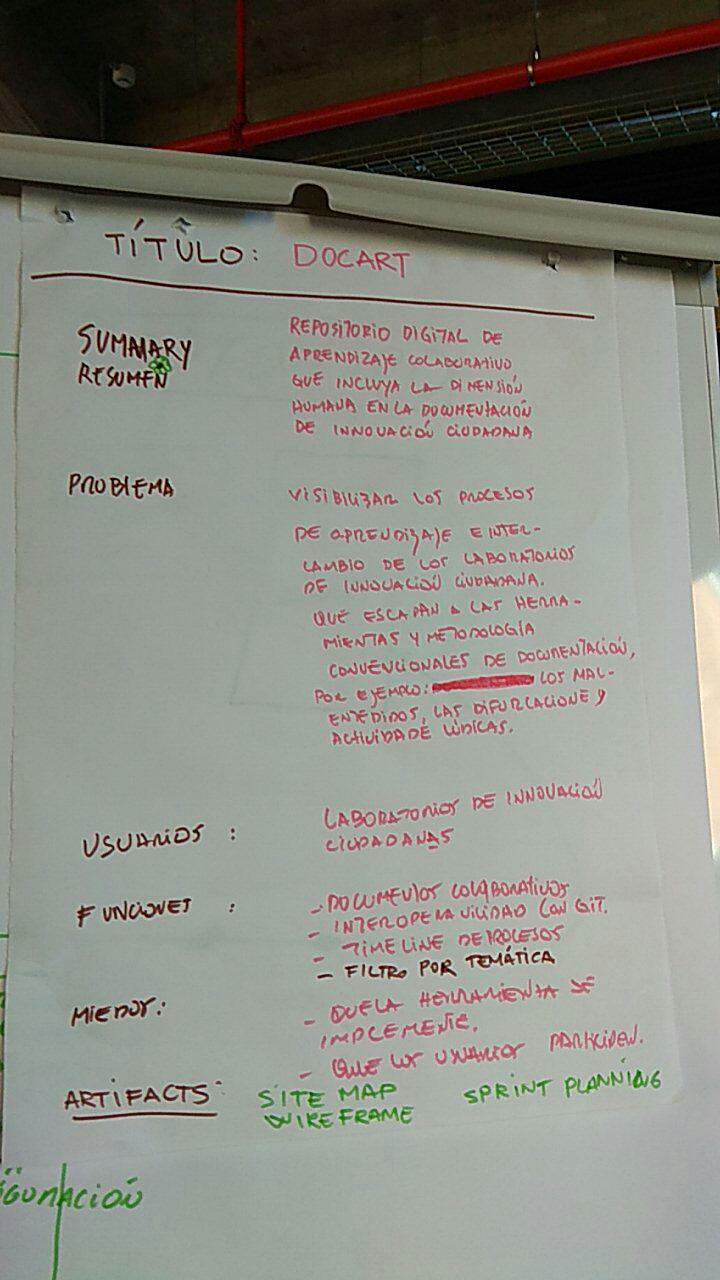 TÍTULO: DOCART
SUMMARY
RESUMEN
REPOSITORIO DIGITAL DE
APRENDIZAJE COLABORATIVO
QUE INCLUYA LA DIMENSIÓN
HUMANA EN LA DOCUMENTACIÓN
DE INNOVACIÓN CIUDADANA
PROBLEMA
VISIBILIZAR LOS PROCESOS
DE APRENDIZAJE E INTER-
CAMBIO DE LOS LABORATORIOS
DE INNOVACIÓN CIUDADANA.
QUE ESCAPAN A LAS HERRA-
MIENTAS Y METODOLOGÍA
CONVENCIONALES DE DOCUMENTACIÓN,
POR EJEMPLO: LOS MAL-
ENTEDIDOS, LAS DIFURCACIONE Y
ACTIVIDADE LÚDICAS.
USUARIOS :
LABORATORIOS DE INNOVACIÓN
CIUDADANAS
FUNCIONES :
- DOCUMENTOS COLABORATIVOS
- INTEROPERAVILIDAD CON GIT.
- TIMELINE DE PROCESOS
- FILTRO POR TEMÁTICA
MIEDOS:
- QUE LA HERRAMIENTA SE
IMPLEMENTE.
- QUE LOS USUARIOS PARTICIPEN.
ARTIFACTS:
SITE MAP SPRINT PLANNING
WIREFRAME